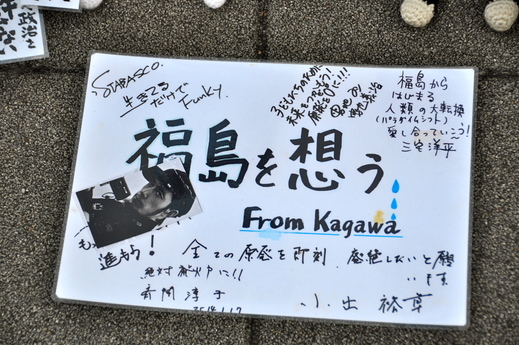 政治を
STABASCO.
生きてる
だけで
Funky.
子どもたちのために
未来を
原発を
福島から
はじまる
人類の大転換
(パラダイムシフト)
愛し合っていこう!
三宅洋平
福島を想う
From Kagawa
進もう!
全ての原発を即刻 廃絶したいと願
います
絶対
小出裕章